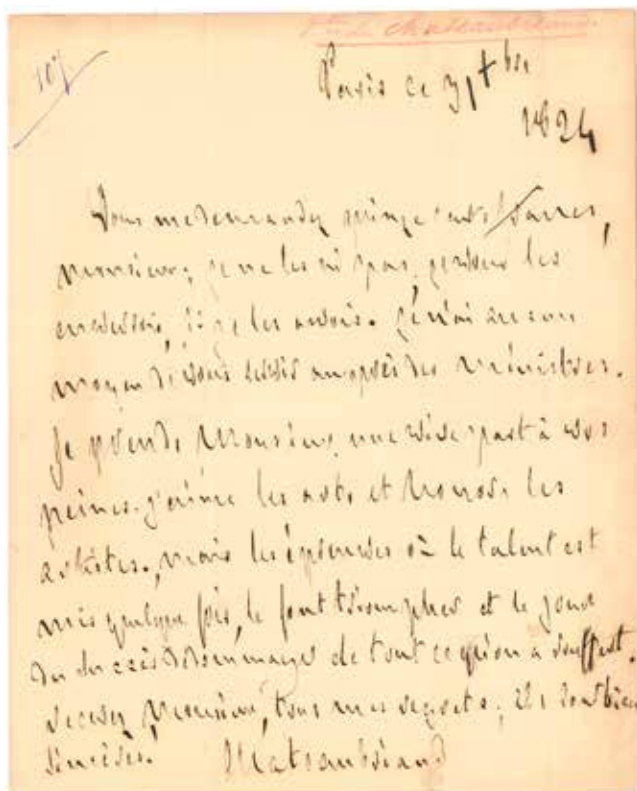 Vte de Chateaubriand
107
Paris ce 31 Xbre
1824
Vous me demandez quinze cents francs,
monsieur; je ne les ai pas, je vous les
enverrois, si je les avois. Je n'ai aucun
moyen de vous servir auprès des ministres.
Je prends, Monsieur, une vive part à vos
peines. j'aime les arts et honore les
artistes, mais les épreuves où le talent est
mis quelque fois, le font triompher et le jour
du succès dédommage de tout ce qu'on a souffert.
recevez, Monsieur, tous mes regrets; ils sont bien
sincères!
Chateaubriand